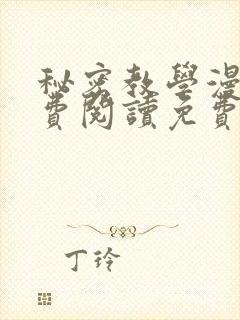 秘密教學漫
費閱讀免費
丁玲